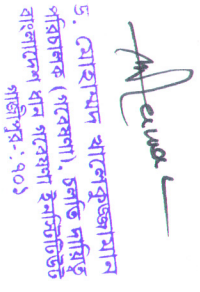 ড. মোহাম্মদ খালেকুজ্জামান
পরিচালক (গবেষণা), চলতি দায়িত্ব
বাংলাদেশ ধান গবেষণা ইনস্টিটিউট
গাজীপুর-১৭০১